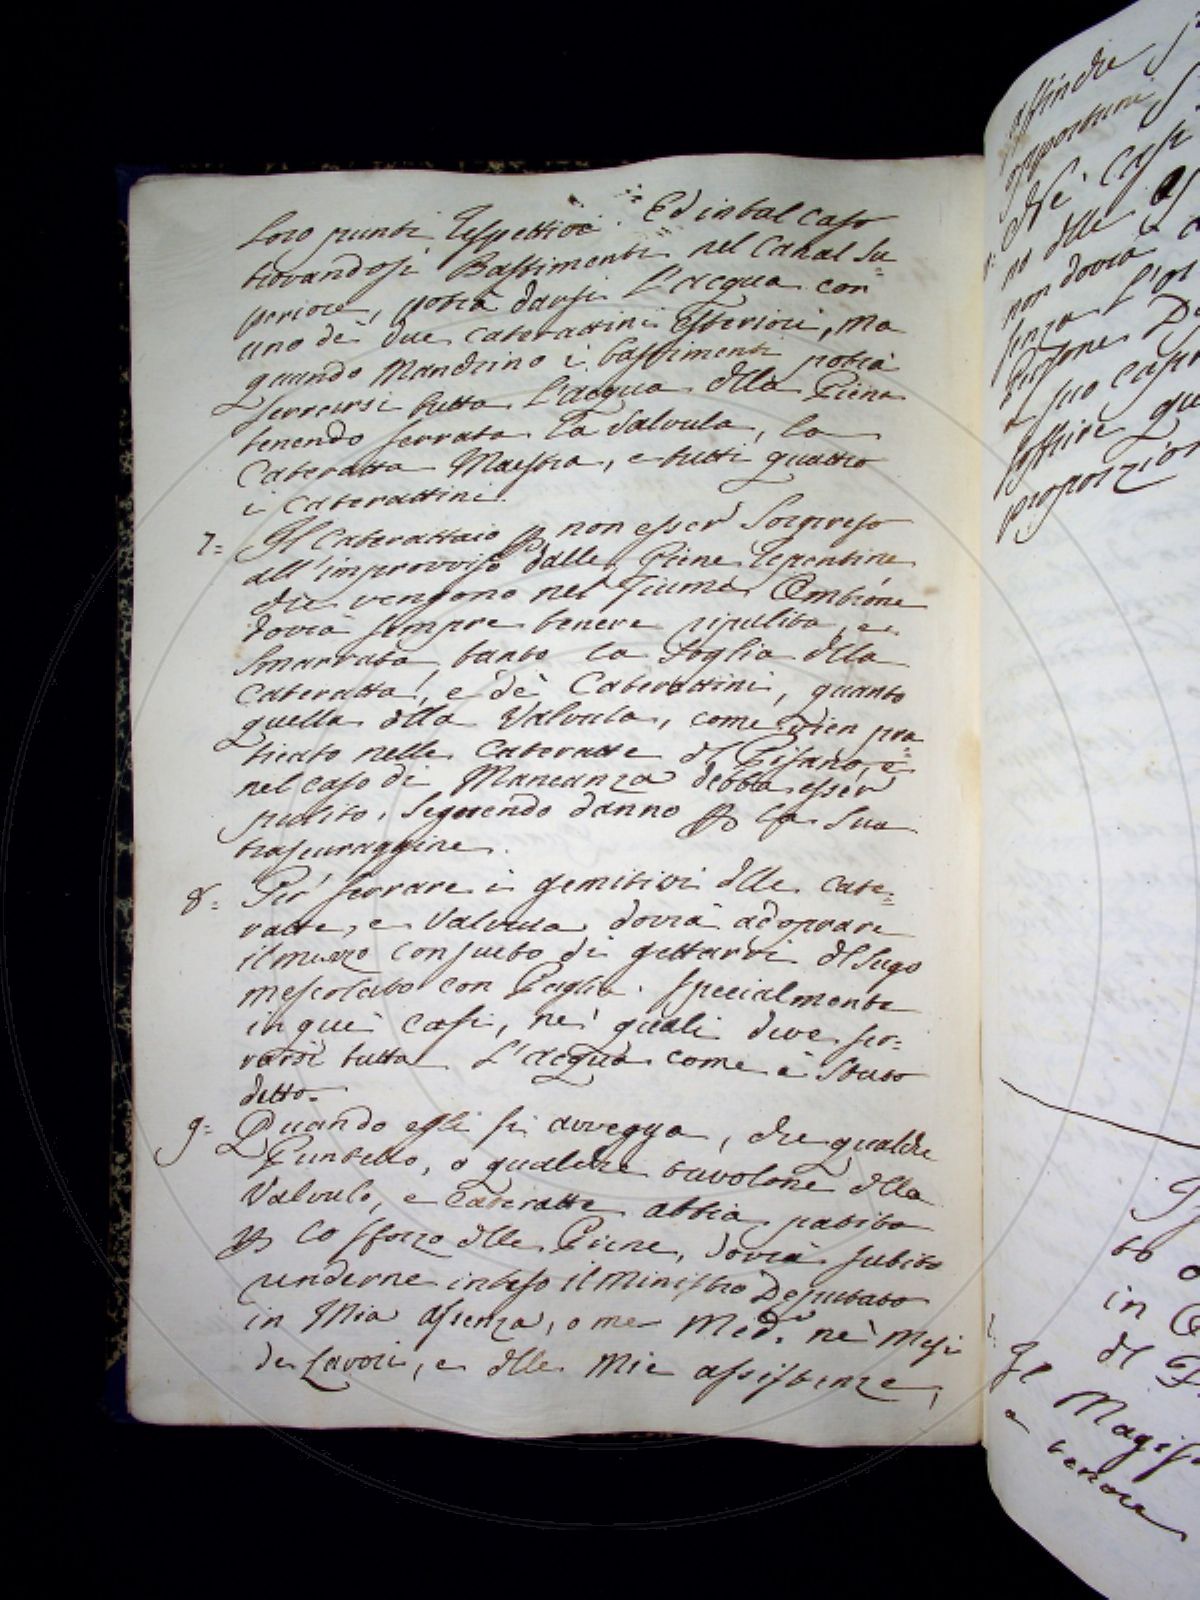 Loro punti respettivi. Ed in tal caso
trovandosi Bastimenti nel Canal Su=
periore, potrà darsi l'acqua con
uno de due caterattini esteriori, ma
quando Manchino i bastimenti potrà
serrarsi tutta l'acqua dlla Piena
tenendo serrata la Valvula, la
Cateratta Maestra, e tutti quattro
i caterattini.
7= Il Caterattaio p non esser Sorpreso
all'improvviso dalle Piene repentine
che vengono nel Fiume Ombrone
dovrà sempre tenere ripulita, e
smarrata, tanto la Soglia dlla
Cateratta, e de Caterattini, quanto
quella dlla Valvula, come vien pra=
ticato nelle Cateratte dl Pisano, e
nel caso di Mancanza debba esser
punito, seguendo danno p la Sua
trascuraggine.
8= Per serrare i gemitivi dlle cate=
ratte, e Valvula dovrà adoprare
il mezzo consueto di gettarvi dl Sugo
mescolato con Paglia. specialmente
in quei casi, nei quali deve ser=
varsi tutta l'acqua come è stato
detto.
9= Quando egli si avvegga, che qualche
Puntello, o qualche tavolone dlla
Valvula, e Cateratte abbia patito
p lo sforzo dlle Piene, dovrà subito
renderne inteso il Ministro Deputato
in Mia assenza, o me Med.o nè Mesi
de Lavori, e dlle Mie assistenze,
affinchè
opportuni
Nè casi
no dlle
non dovrà
senza l'
Persone
a suo
soffrire
proporzion
to
in
dl
Il Magis
a tenore